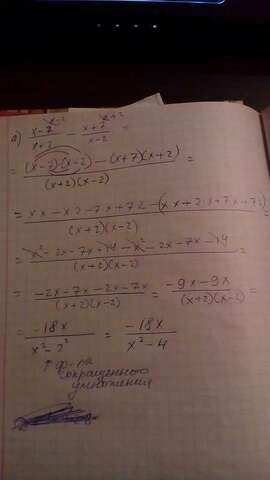 а) x-7/x+2 - x+7/x-2 =
= (x-7)(x-2)-(x+7)(x+2)/(x+2)(x-2) =
= xx-x2-7x+72-(xx+2x+7x+72)/(x+2)(x-2)
= x²-2x-7x+14-x²-2x-7x-14/(x+2)(x-2) =
= -2x-7x-2x-7x/(x+2)(x-2) = -9x-9x/(x+2)(x-2) =
= -18x/x²-2² = -18x/x²-4
↑ ф-ла
сокращенного
умножения